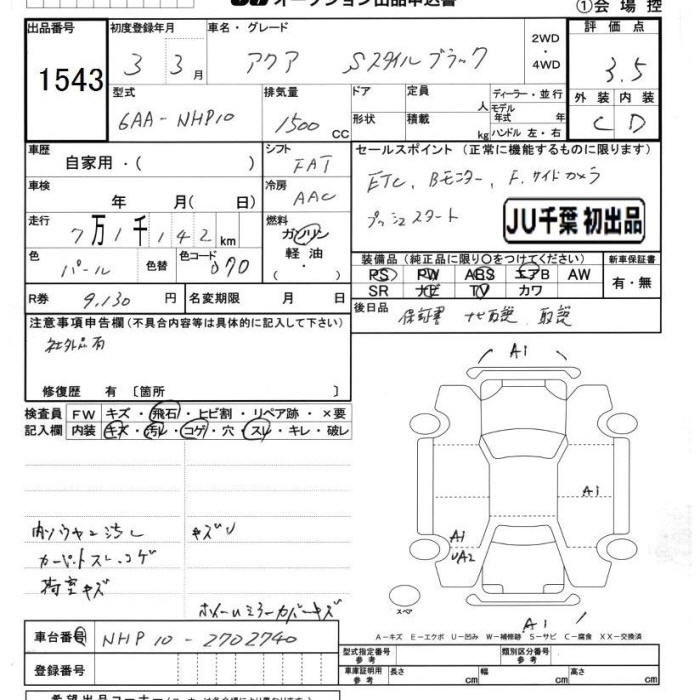 オークション出品申込書 ①会場控
出品番号 初度登録年月 車名・グレード 2WD ・ 4WD 評価点
1543 3 3月 アクア Sスタイルブラック 3.5
型式 排気量 ドア 定員 人 ディーラー・並行 外装 内装
6AA-NHP10 1500 CC 形状 積載 kg モデル年式 年 ハンドル 左・右 C D
車歴 自家用・( ) シフト FAT セールスポイント (正常に機能するものに限ります)
車検 年 月( 日) 冷房 AAC ETC, Bモニター, F.サイドカメラ
走行 7万1千142km 燃料 ガソリン 軽油 ( ・ ) プッシュスタート JU千葉 初出品
色 パール 色替 色コード 070 装備品 (純正品に限り○をつけてください) 新車保証書
PS PW ABS エアB AW 有・無
SR ナビ TV カワ
R券 9,130円 名変期限 月 日 後日品 保証書 ナビ取説 取説
注意事項申告欄(不具合内容等は具体的に記入して下さい)
社外品有
修復歴 有 〔箇所 〕
検査員 FW キズ・飛石・ヒビ割・リペア跡・×要
記入欄 内装 キズ・汚レ・コゲ・穴・スレ・キレ・破レ
内ソウヤニ汚レ キズU
カーペットスレ、コゲ
荷室キズ
ホイールミラーカバーキズ
A1
A1
A1
UA2
スペア
A1
A-キズ E-エクボ U-凹み W-補修跡 S-サビ C-腐食 XX-交換済
車台番号 NHP10-2702740
登録番号
型式指定番号 参考 類別区分番号 参考
車庫証明用 参考 長さ cm 幅 cm 高さ cm